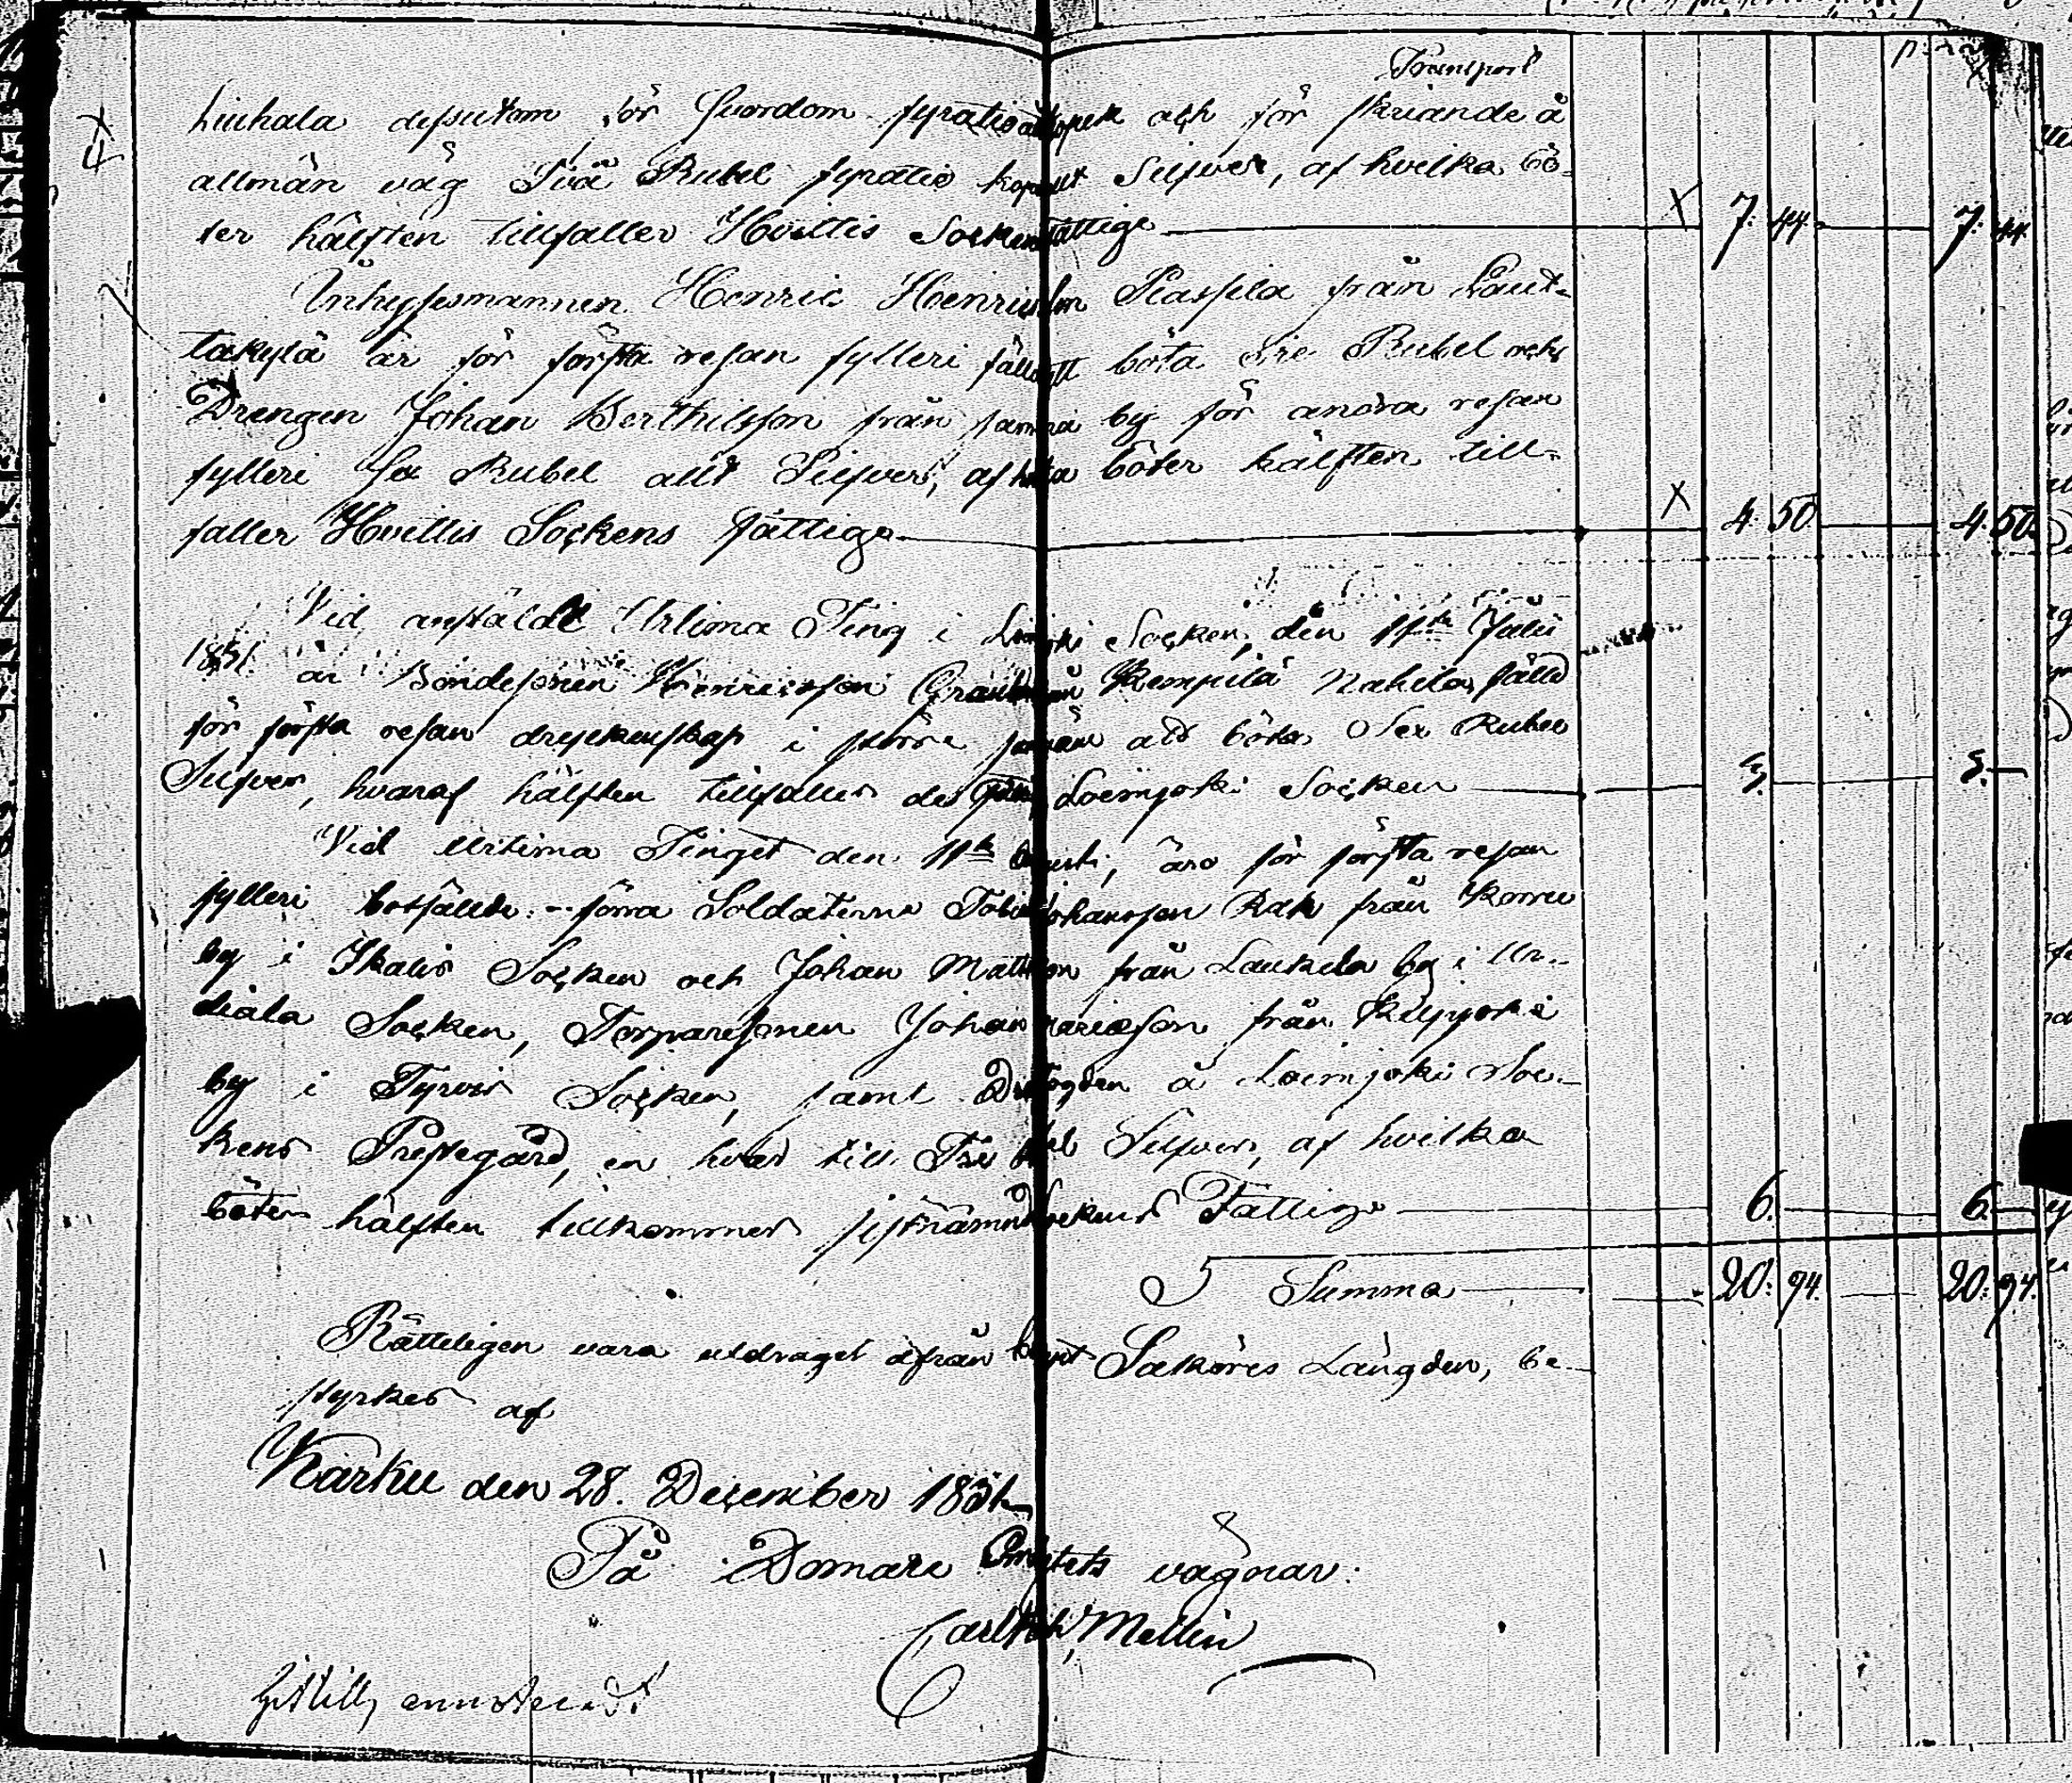 Transport
Liuhala dessutom för Svordom fyratioått kopek och för skriande å
allmän väg Två Rubel fyratio kopek allt Silfver, af hvilka bö-
ter hälften tillfaller Hvittis Sockens fattige 7: 44. 7: 44.
Inhysesmannen Henric Henricsson från Laut-
takylä är för första resan fylleri fälld att böta tre Rubel och
Drengen Johan Berthilsson från samma by för andra resan
fylleri Sex Rubel allt Silfver, af böter hälften till-
faller Hvittis Sockens fattige 4. 50. 4. 50.
Vid anstäldt Urtima Ting i Socken, den 11te Julii
1851 är Bondesonen Henricsson Kempilä Nahila fälld
för första resan dryckenskap i större att böta Sex Rubel
Silfver, hvaraf hälften tillfaller de Loimjoki Socken 3. 3.
Vid Urtima Tinget den 11te äro för första resan
fylleri botfällde: förra Soldaterne Tobias Johansson Rask från
by i Ikalis Socken och Johan Mattsson från Laukela by i Ur-
diala Socken, Torparesonen Johan från Kilpijoki
by i Tyrvis Socken, samt å Loimjoki Soc-
kens Prestegård, en hvar till Tre Rubel Silfver, af hvilka
böter hälften tillkommer sistnämnde Sockens Fattige 6. 6.
Summa 20: 94. 20: 94.
Rätteligen vara utdraget ifrån Saköres Längden, be-
styrker af
Karku den 28. December 1851
På Domare Embetets vägnar:
Carl Mellin
annoteradt